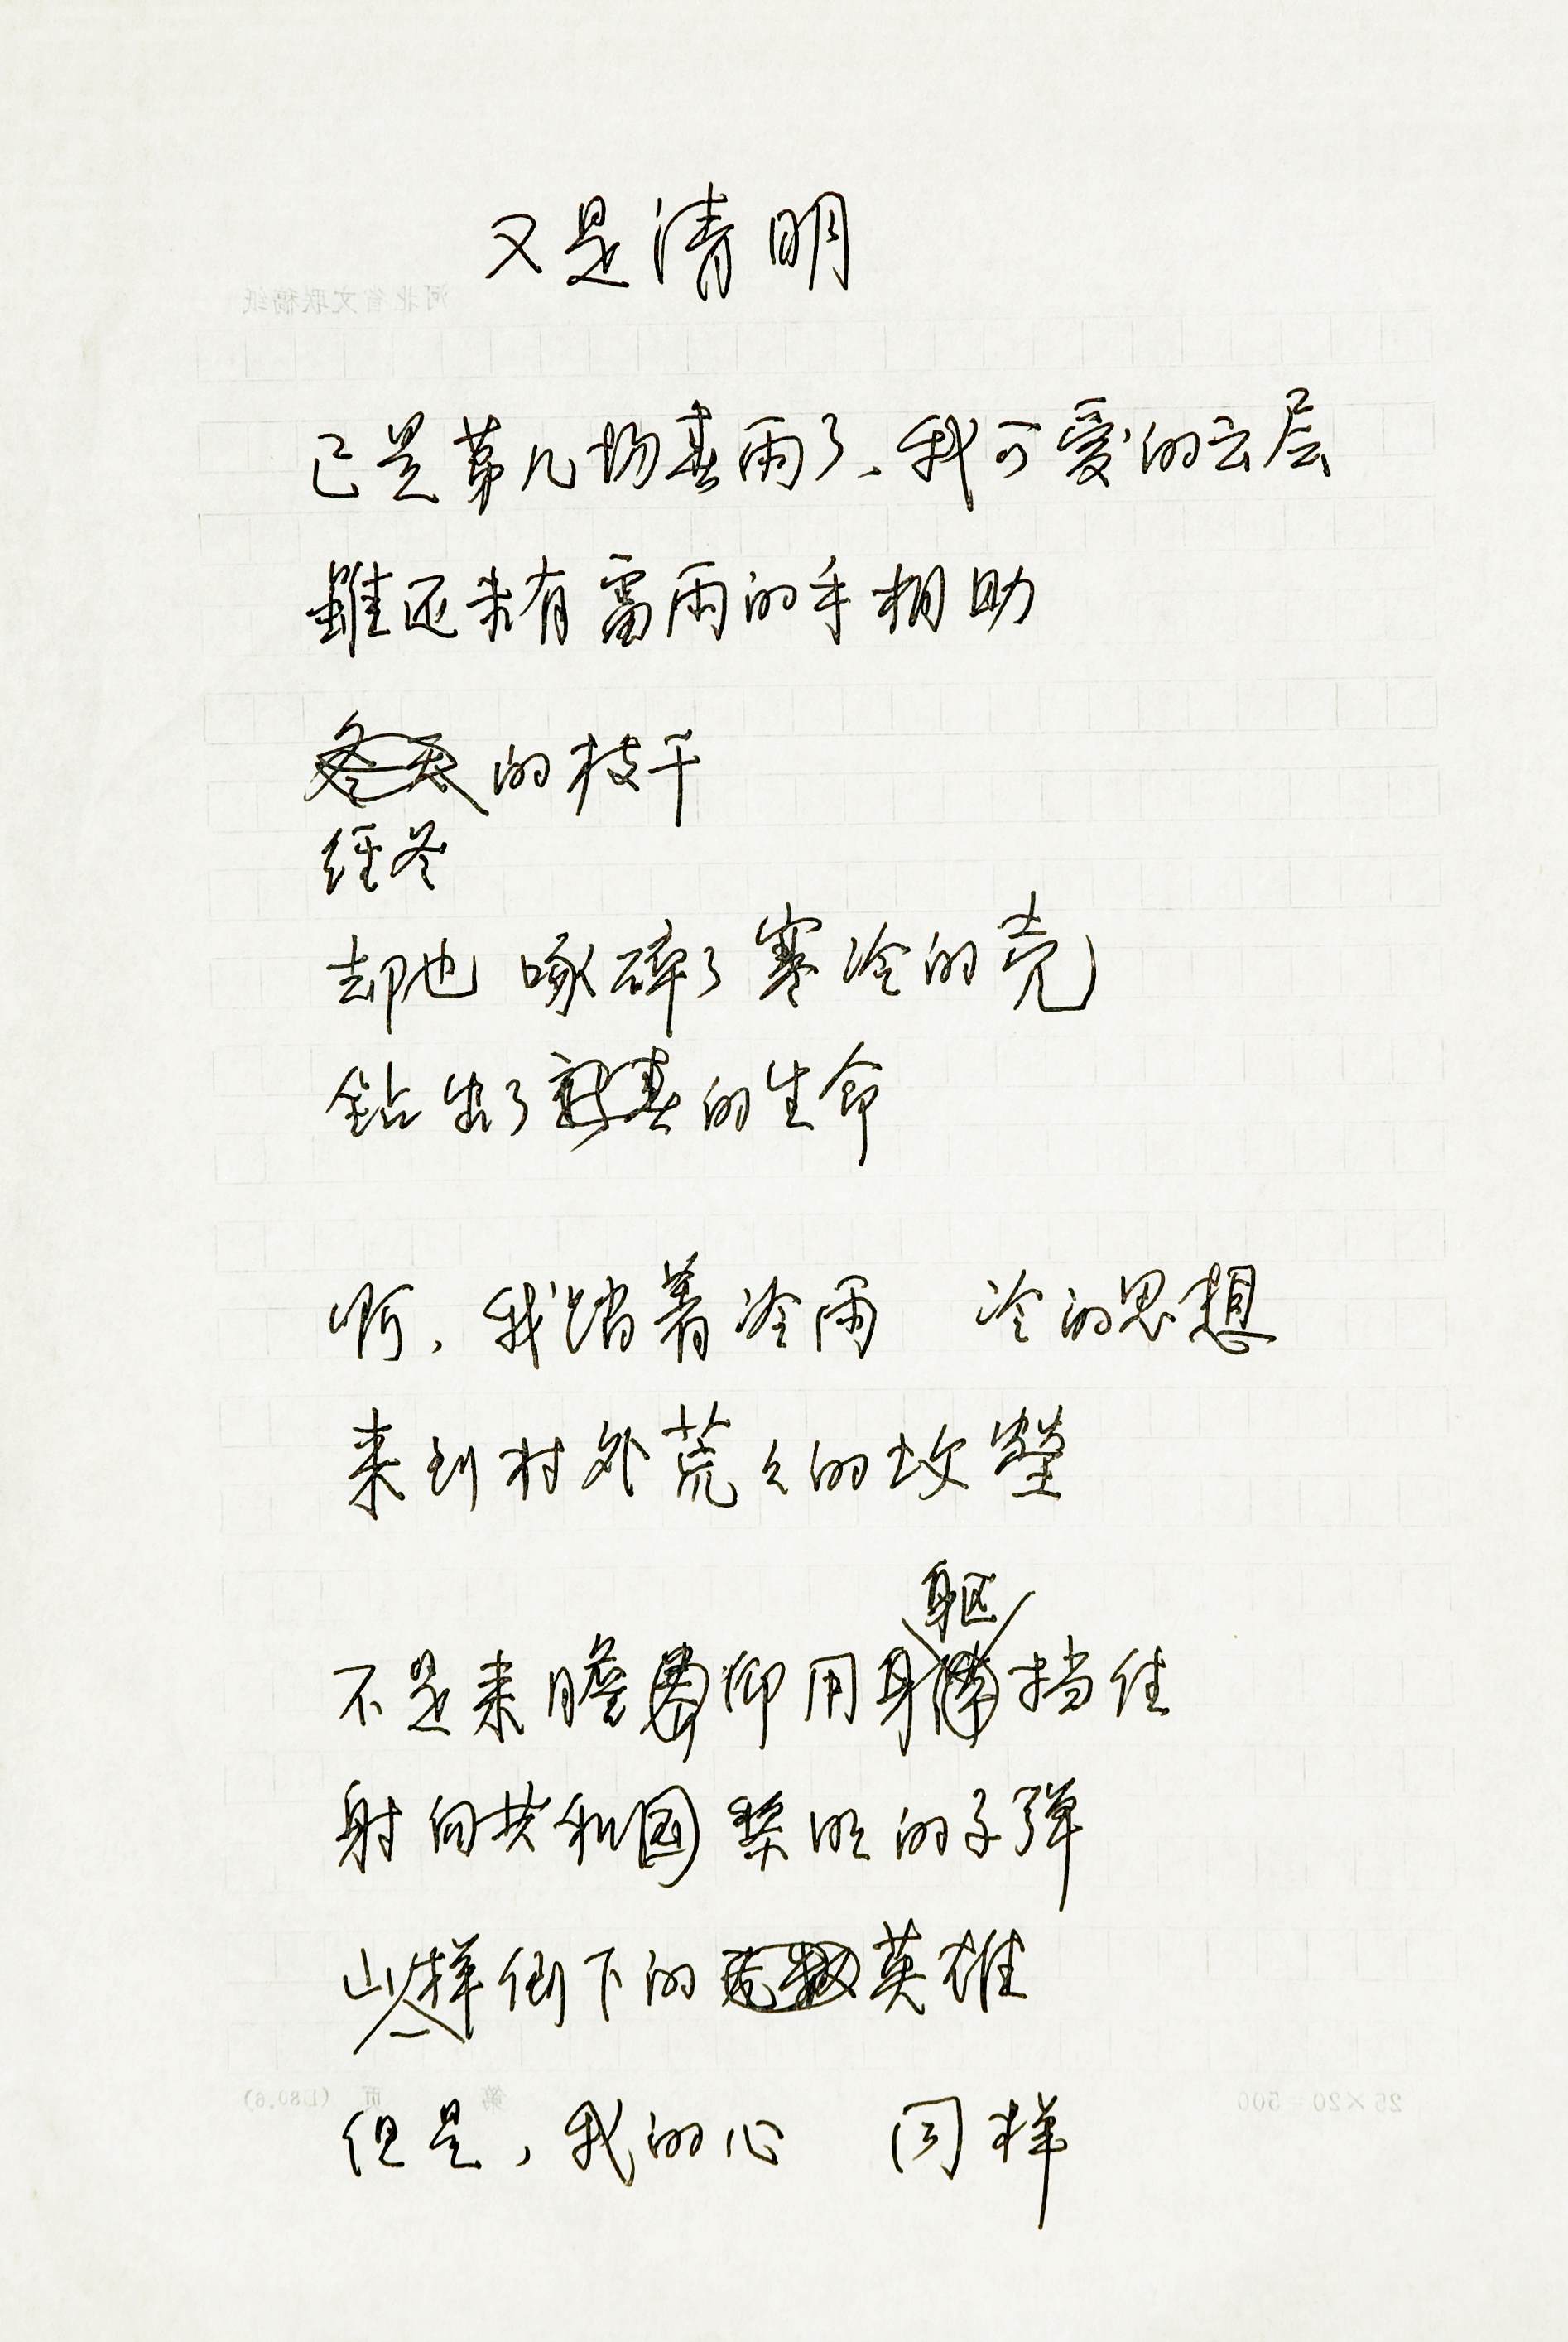 又是清明
河北省文联稿纸
已是第几场春雨了、我可爱的云层
虽还未有雷雨的手相助
的枝干
经冬
却也 啄碎了寒冷的壳
钻出了春的生命
啊，我踏着冷雨 冷的思想
来到村外荒々的坟茔
躯
不是来瞻仰用身挡住
射向共和国黎明的子弹
山一样倒下的英雄
第 页 (L80.6)
25×20=500
但是，我的心 同样